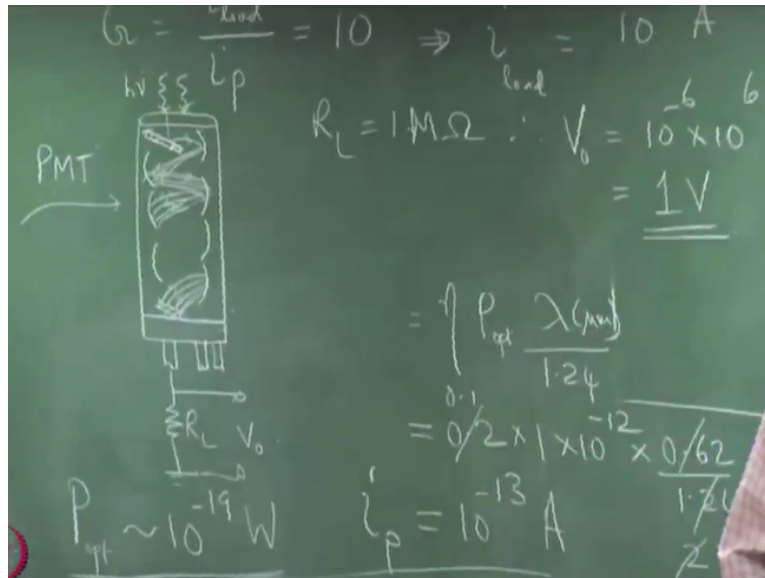 G = i load / i p = 10 ⇒ i load = 10 A
hν
PMT
R L = 1 MΩ ∴ V₀ = 10⁻⁶ × 10⁶
= 1 V
= η P opt λ(μm) / 1.24
0.1
= 0/2 × 1 × 10⁻¹² × 0.62 / 1.24
2
R L V₀
P opt ~ 10⁻¹⁹ W
i p = 10⁻¹³ A